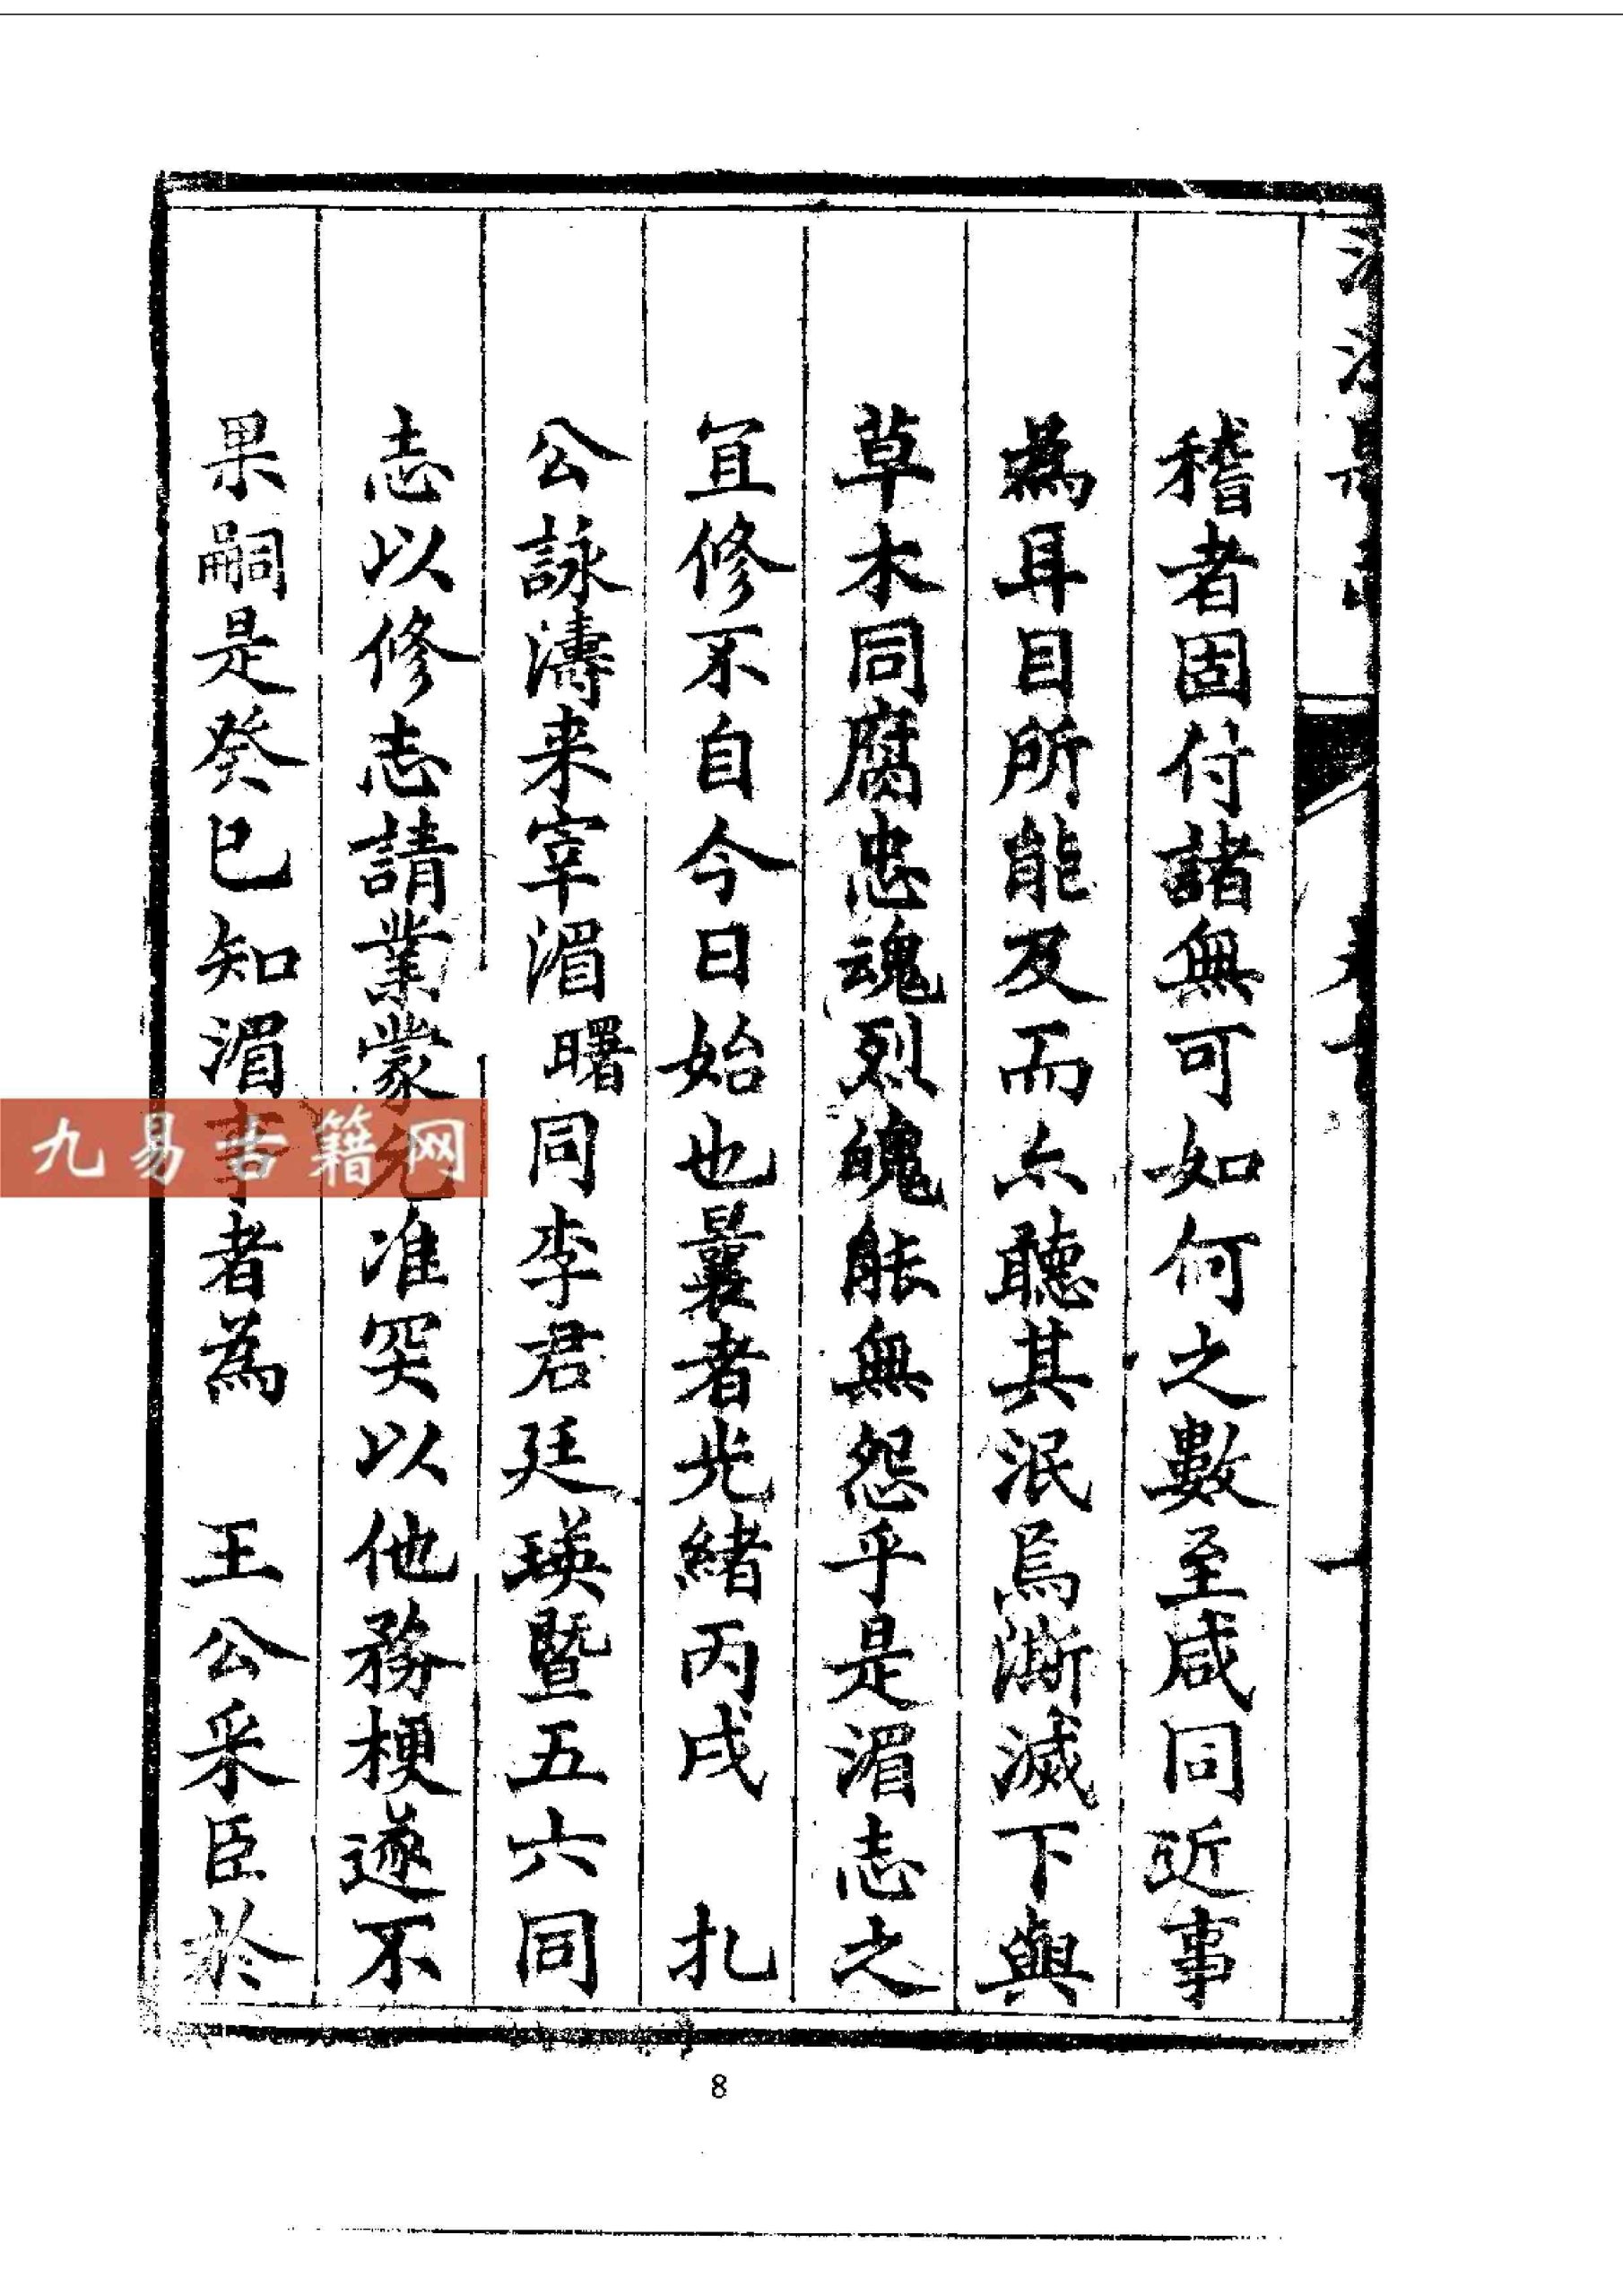 稽者固付諸無可如何之數至咸同近事
為耳目所能及而亦聽其泯焉澌滅下與
草木同腐忠魂烈魄能無怨乎是湄志之
宜修不自今日始也曩者光緒丙戌 札
公詠濤来宰湄曙同李君廷瑛暨五六同
志以修志請業蒙允准奕以他務梗遂不
果嗣是癸巳知湄事者為 王公采臣於
九易古籍网
8